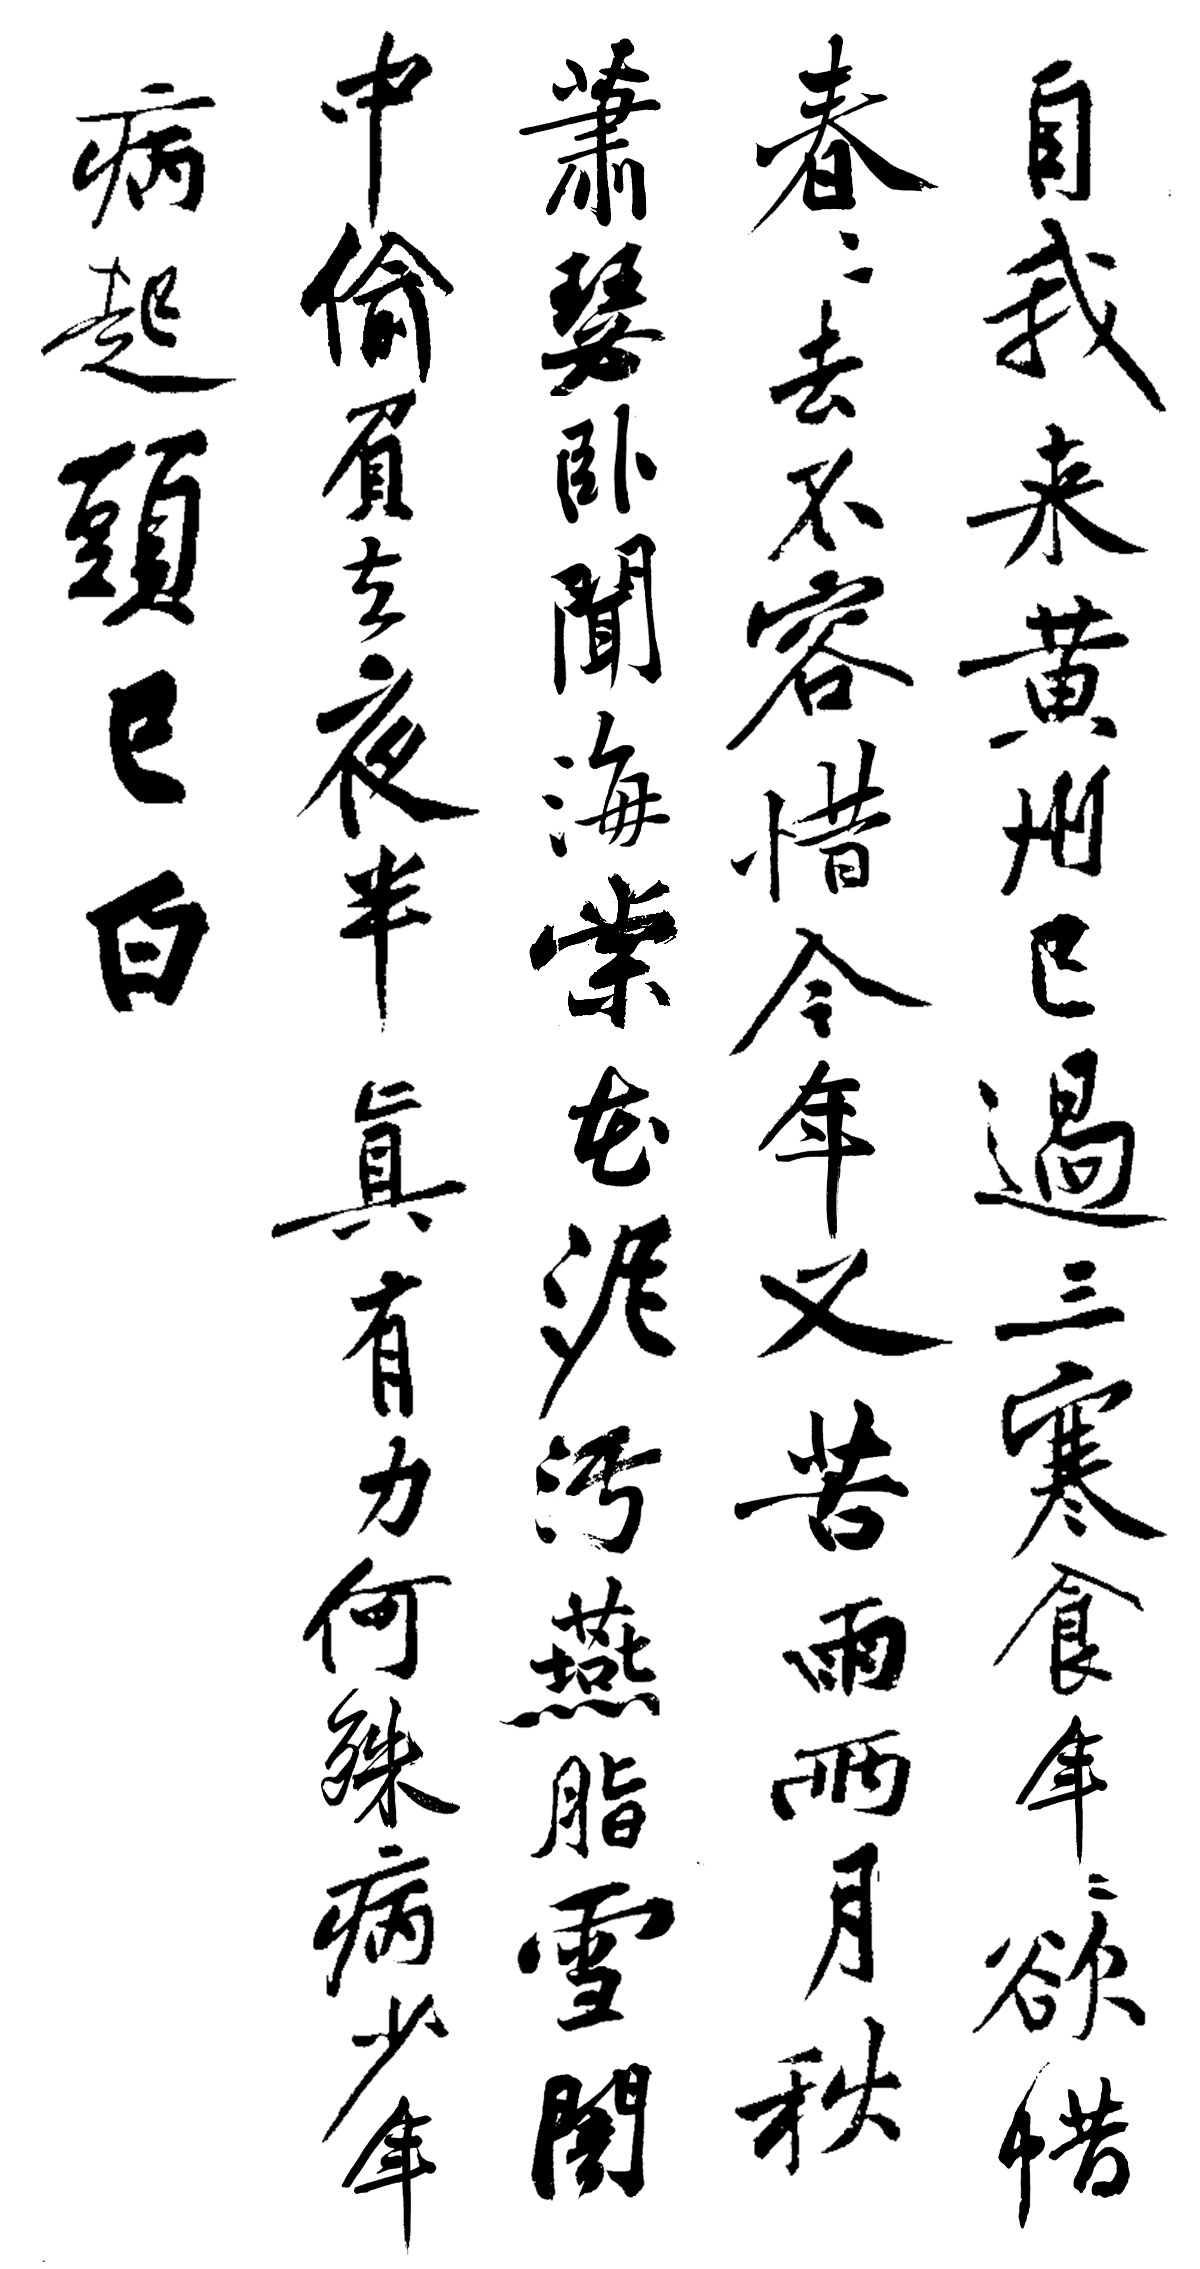 自我来黄州已過三寒食年〻欲惜
春〻去不容惜今年又苦雨兩月秋
蕭瑟卧聞海棠花泥污燕脂雪闇
中偷負去夜半真有力何殊病少年
病起頭已白